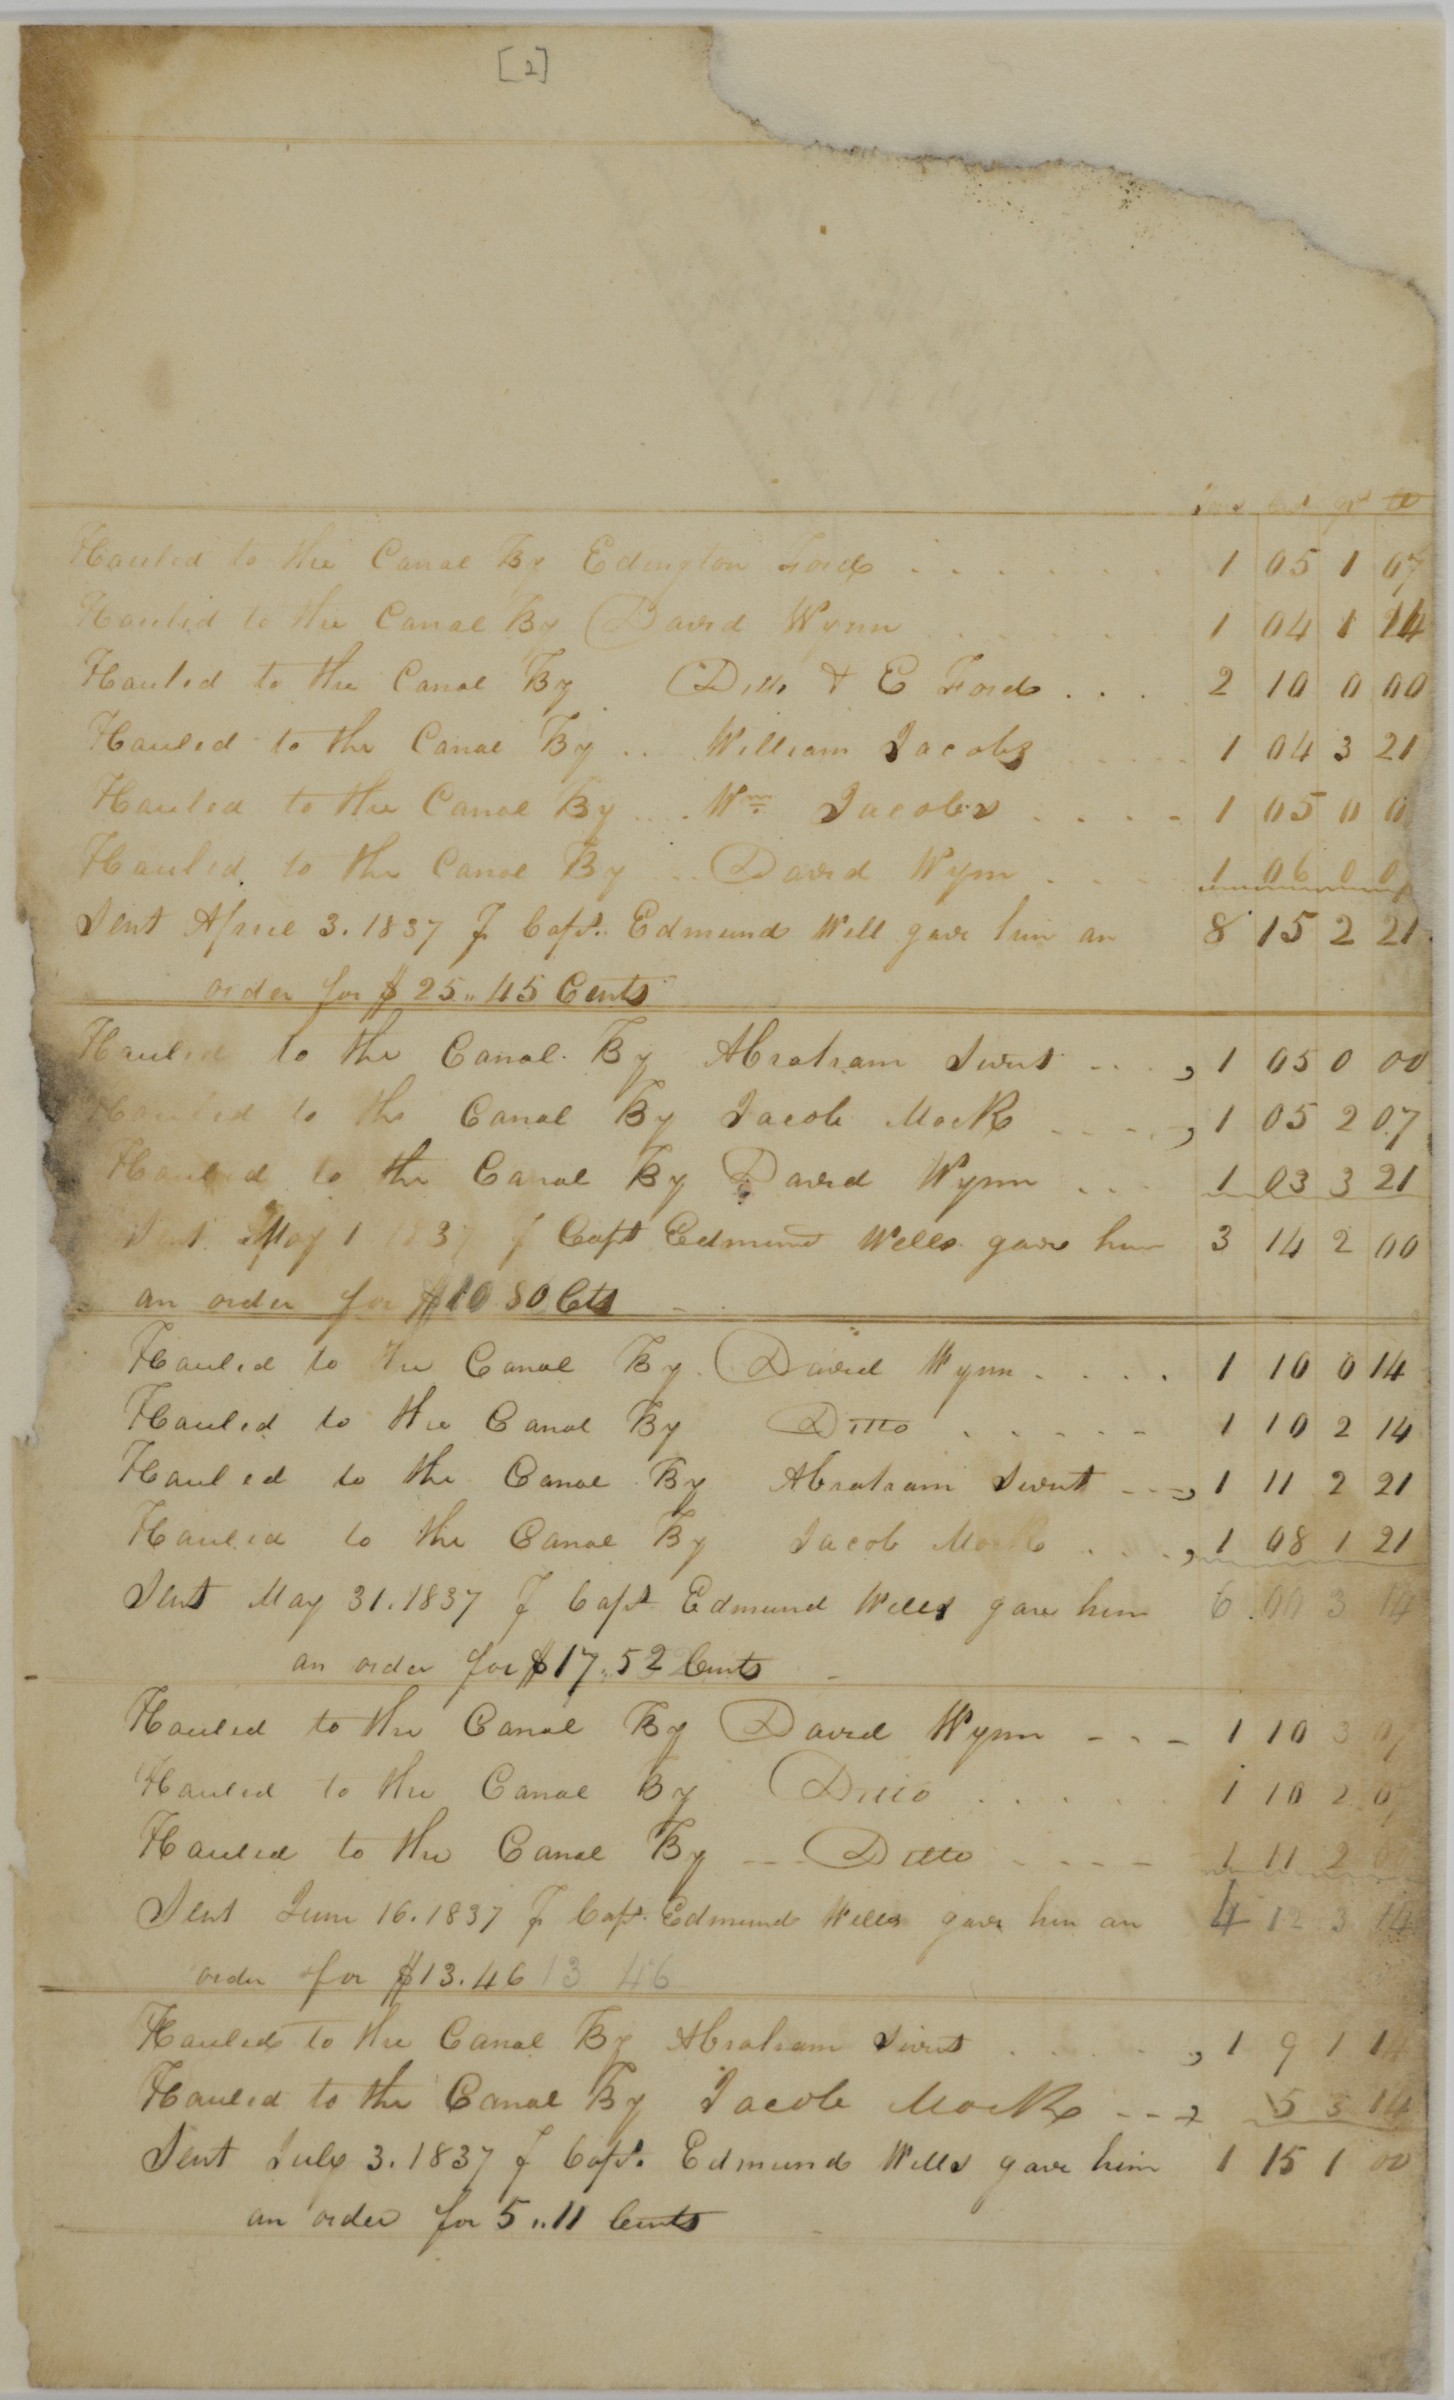 [2]
Tons Cwt qr lb
Hauled to the Canal By Edington Ford . . . . . . 1 05 1 07
Hauled to the Canal By David Wynn . . . . . 1 04 1 14
Hauled to the Canal By Ditto & E Ford . . . 2 10 0 00
Hauled to the Canal By .. William Jacobs . . . . . 1 04 3 21
Hauled to the Canal By ... Wm Jacobs . . . - 1 05 0 0
Hauled to the Canal By .. David Wynn . . . 1 06 0 0
Sent April 3. 1837 pr Capt. Edmund Will gave him an 8 15 2 21
order for $ 25,, 45 Cents
Hauled to the Canal By Abraham Swrt - - . . , 1 05 0 00
Hauled to the Canal By Jacob Mock - - - - , 1 05 2 07
Hauled to the Canal By David Wynn . . . 1 03 3 21
Sent May 1 1837 pr Capt Edmund Wells gave him 3 14 2 00
an order for $10 80 Cts
Hauled to the Canal By David Wynn . . . . 1 10 0 14
Hauled to the Canal By Ditto . . . . - 1 10 2 14
Hauled to the Canal By Abraham Swrt - - - , 1 11 2 21
Hauled to the Canal By Jacob Mock . . . , 1 08 1 21
Sent May 31. 1837 pr Capt Edmund Wells gave him 6 00 3 14
an order for $17,, 52 Cents
Hauled to the Canal By David Wynn - - - 1 10 3 07
Hauled to the Canal By Ditto . . . . . 1 10 2 07
Hauled to the Canal By - - Ditto - - - - 1 11 2
Sent June 16. 1837 pr Capt. Edmund Wells gave him an 4 12 3 14
order for $13. 46 13 46
Hauled to the Canal By Abraham Swrt . . . . . , 1 9 1 14
Hauled to the Canal By Jacob Mock - - , 5 3 14
Sent July 3. 1837 pr Capt. Edmund Wells gave him 1 15 1 00
an order for 5 ,, 11 Cents